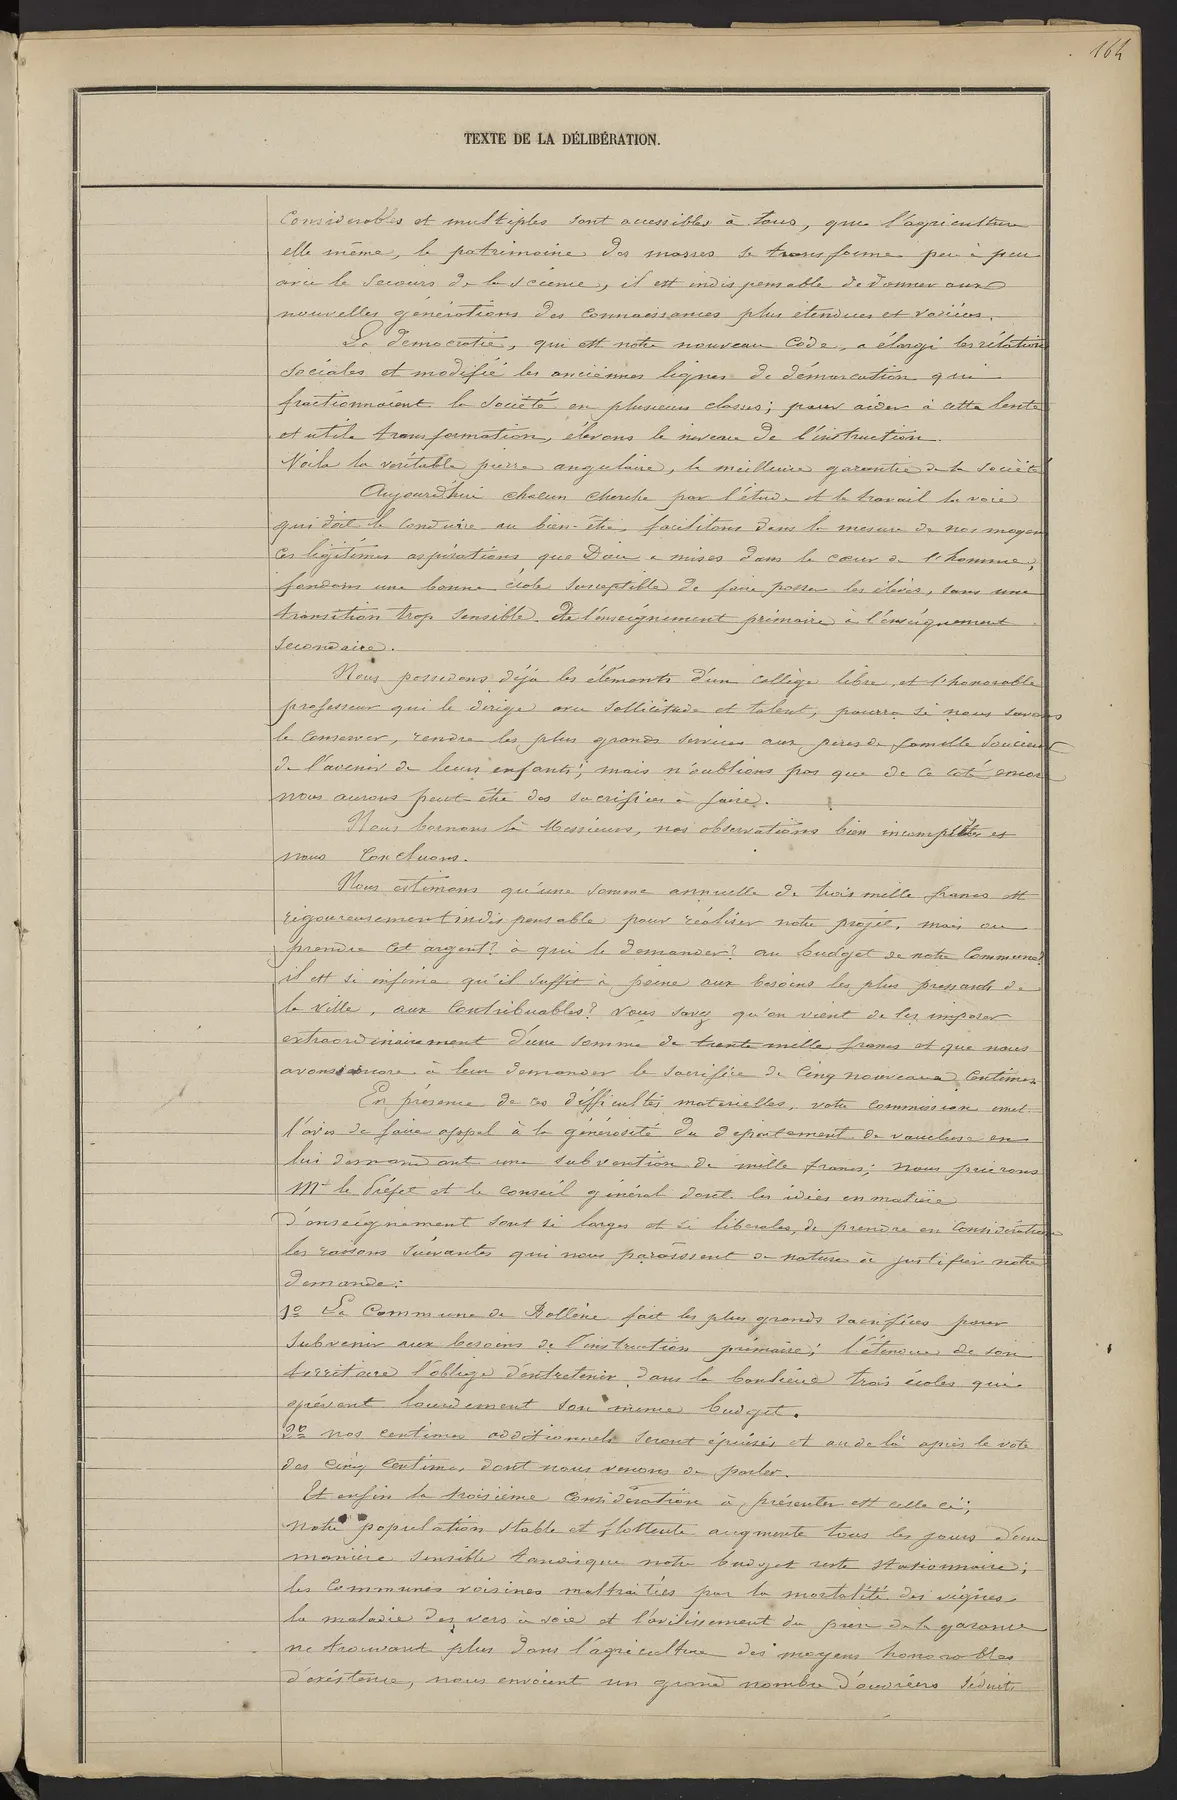 164
TEXTE DE LA DÉLIBÉRATION.
Considerables et multiples sont accessibles à tous, que l'agriculture
elle même, le patrimoine des masses se transforme peu à peu
avec le secours de la science, il est indispensable de donner aux
nouvelles générations des connaissances plus étendues et variées.
La démocratie, qui est notre nouveau Code, a élargi les rélations
sociales et modifié les anciennes lignes de démarcation qui
fractionnaient la société en plusieurs classes; pour aider à cette lente
et utile transformation, élevons le niveau de l'instruction.
Voila la véritable pierre angulaire, la meilleure garantie de la société
Aujourd'hui chacun cherche par l'étude et le travail la voie
qui doit le conduire au bien-être, facilitons dans la mesure de nos moyens
ces légitimes aspirations que Dieu a mises dans le cœur de l'homme;
fondons une bonne école susceptible de faire passer les élèves, sans une
transition trop sensible de l'enseignement primaire à l'enseignement
secondaire.
Nous possedons déjà les éléments d'un collège libre, et l'honorable
professeur qui le dirige avec sollicitude et talent, pourra si nous savons
le conserver, rendre les plus grands services aux peres de famille soucieux
de l'avenir de leurs enfants; mais n'oublions pas que de ce coté encore
nous aurons peut-être des sacrifices à faire.
Nous bornons là Messieurs, nos observations bien incomplètes et
nous concluons.
Nous estimons qu'une somme annuelle de trois mille francs est
rigoureusement indispensable pour réaliser notre projet, mais ou
prendre cet argent? à qui le demander? au budget de notre Commune?
il est si infime qu'il suffit à peine aux besoins les plus pressants de
la ville, aux Contribuables? vous savez qu'on vient de les imposer
extraordinairement d'une somme de trente mille francs et que nous
avons encore à leur demander le sacrifice de Cinq nouveaux Centimes.
En présence de ces difficultés materielles, votre commission emet
l'avis de faire appel à la générosité du departement de vaucluse en
lui demandant une subvention de mille francs; nous prierons
Mr le Préfet et le conseil général dont les idées en matière
d'enseignement sont si larges et si liberales, de prendre en Considération
les raisons suivantes qui nous paraissent de nature à justifier notre
demande:
1o La Commune de Bollène fait les plus grands sacrifices pour
subvenir aux besoins de l'instruction primaire; l'étendue de son
territoire l'oblige d'entretenir dans la banlieue trois écoles qui
grèvent lourdement son mince budget.
2o nos centimes additionnels seront épuisés et au delà après le vote
des cinq centimes dont nous venons de parler.
Et enfin la troisième considération à présenter est celle ci;
notre population stable et flottante augmente tous les jours d'une
manière sensible tandis que notre budget reste stationnaire;
les communes voisines maltraitées par la mortalité des vignes
la maladie des vers à soie et l'avilissement du prix de la garance
ne trouvant plus dans l'agriculture des moyens honorables
d'existence, nous envoient un grand nombre d'ouvriers séduits